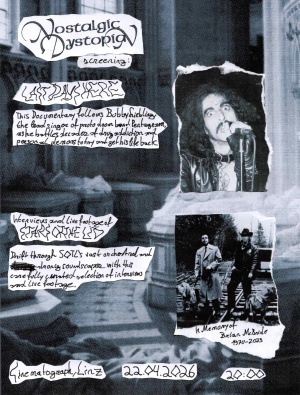 Nostalgic
Dystopia
screening:
LAST DAYS HERE
This Documentary follows Bobby Liebling,
the lead singer of proto doom band Pentagram,
as he battles decades of drug addiction and
personal demons to try and get his life back.
Interviews and live footage of
STARS OF THE LID
Drift through SOTL's vast orchestral and
droney soundscapes with this
carefully curated selection of interviews
and live footage.
In Memory of
Brian McBride
1970-2023
Cinematograph, Linz
22.04.2026
20:00